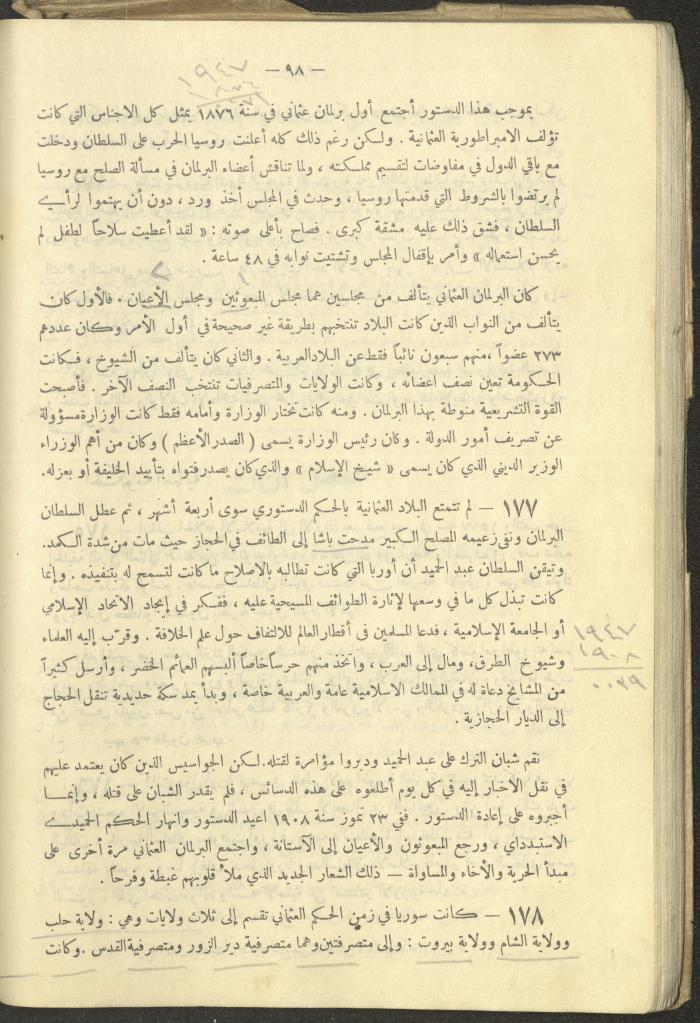 — ٩٨ —
١٩٤٧
١٨٧٦
بموجب هذا الدستور أجتمع أول برلمان عثماني في سنة ١٨٧٦ يمثل كل الاجناس التي كانت
تؤلف الامبراطورية العثمانية . ولكن رغم ذلك كله أعلنت روسيا الحرب على السلطان ودخلت
مع باقي الدول في مفاوضات لتقسيم مملكته ، ولما تناقش أعضاء البرلمان في مسألة الصلح مع روسيا
لم يرتضوا بالشروط التي قدمتها روسيا ، وحدث في المجلس أخذ ورد ، دون أن يهتموا لرأي
السلطان ، فشق ذلك عليه مشقة كبرى . فصاح بأعلى صوته : « لقد أعطيت سلاحاً لطفل لم
يحسن استعماله » وأمر بإقفال المجلس وتشتيت نوابه في ٤٨ ساعة .
كان البرلمان العثماني يتألف من مجلسين هما مجلس المبعوثين ومجلس الأعيان . فالأول كان
يتألف من النواب الذين كانت البلاد تنتخبهم بطريقة غير صحيحة في أول الأمر وكان عددهم
٢٧٣ عضواً ،منهم سبعون نائباً فقط عن البلاد العربية . والثاني كان يتألف من الشيوخ ، فكانت
الحكومة تعين نصف اعضائه ، وكانت الولايات والمتصرفيات تنتخب النصف الآخر . فأصبحت
القوة التشريعية منوطة بهذا البرلمان . ومنه كانت تختار الوزارة وأمامه فقط كانت الوزارة مسؤولة
عن تصريف أمور الدولة . وكان رئيس الوزارة يسمى ( الصدر الأعظم ) وكان من أهم الوزراء
الوزير الديني الذي كان يسمى « شيخ الإسلام » والذي كان يصدر فتواه بتأييد الخليفة أو بعزله.
١٧٧ — لم تتمتع البلاد العثمانية بالحكم الدستوري سوى أربعة أشهر ، ثم عطل السلطان
البرلمان ونفى زعيمه المصلح الكبير مدحت باشا إلى الطائف في الحجاز حيث مات من شدة الكمد.
وتيقن السلطان عبد الحميد أن أوربا التي كانت تطالبه بالاصلاح ما كانت لتسمح له بتنفيذه . وإنما
كانت تبذل كل ما في وسعها لإثارة الطوائف المسيحية عليه ، ففكر في إيجاد الاتحاد الإسلامي
أو الجامعة الإسلامية ، فدعا المسلمين في أقطار العالم للالتفاف حول علم الخلافة . وقرّب إليه العلماء
وشيوخ الطرق، ومال إلى العرب ، واتخذ منهم حرساً خاصاً ألبسهم العمائم الخضر ، وأرسل كثيراً
من المشايخ دعاة له في الممالك الاسلامية عامة والعربية خاصة ، وبدأ يمد سكة حديدية تنقل الحجاج
إلى الديار الحجازية .
١٩٤٧
١٩٠٨
٠٠٣٩
نقم شبان الترك على عبد الحميد ودبروا مؤامرة لقتله. لكن الجواسيس الذين كان يعتمد عليهم
في نقل الاخبار إليه في كل يوم أطلعوه على هذه الدسائس ، فلم يقدر الشبان على قتله ، وإنما
أجبروه على إعادة الدستور . ففي ٢٣ تموز سنة ١٩٠٨ اعيد الدستور وانهار الحكم الحميدي
الاستبدادي ، ورجع المبعوثون والأعيان إلى الآستانة ، واجتمع البرلمان العثماني مرة أخرى على
مبدأ الحرية والأخاء والمساواة — ذلك الشعار الجديد الذي ملأ قلوبهم غبطة وفرحاً .
١٧٨ — كانت سوريا في زمن الحكم العثماني تقسم إلى ثلاث ولايات وهي : ولاية حلب
وولاية الشام وولاية بيروت : وإلى متصرفتين وهما متصرفية دير الزور ومتصرفية القدس . وكانت